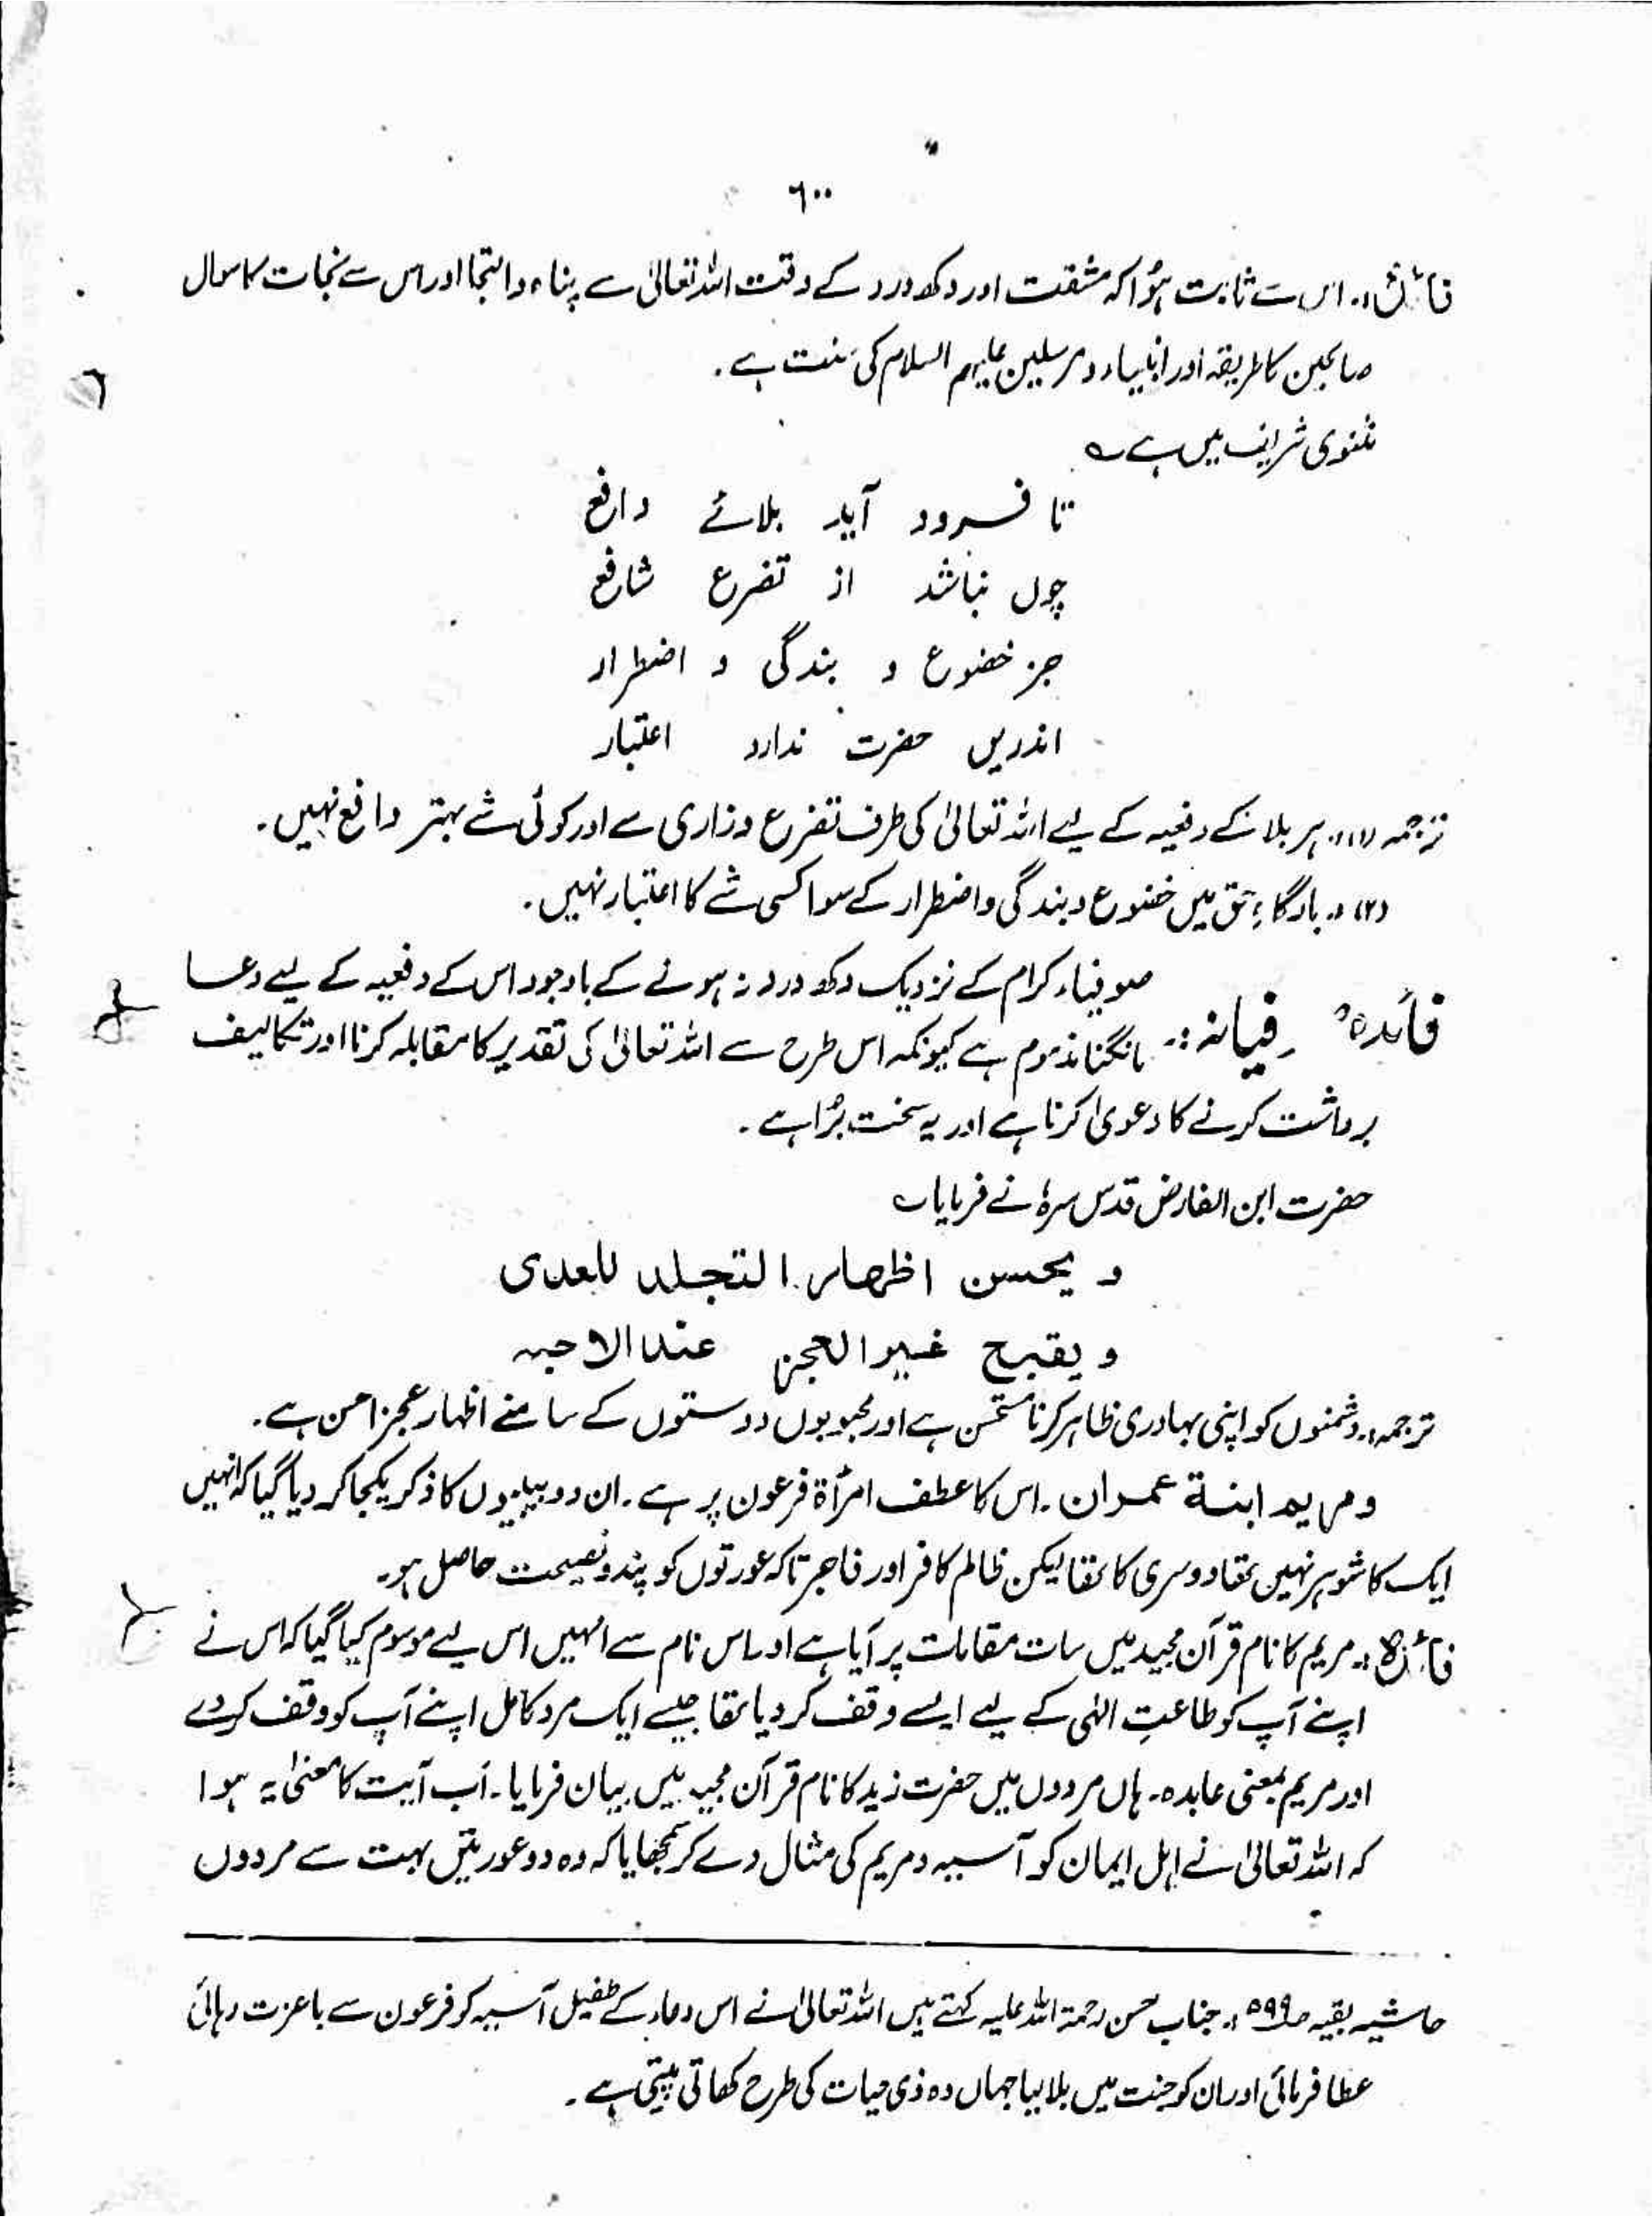 ٦٠٠
فائدہ:۔ اس سے ثابت ہُوا کہ مشقت اور دکھ درد کے وقت اللہ تعالیٰ سے پناہ و التجا اور اس سے نجات کا سوال
صالحین کا طریقہ اور انبیاء و مرسلین علیہم السلام کی سنت ہے۔
مثنوی شریف میں ہے ؎
تا فرود آید بلائے دافع
چوں نباشد از تضرع شافع
جز خضوع و بندگی و اضطرار
اندریں حضرت ندارد اعتبار
ترجمہ (۱)۔ ہر بلا کے دفعیہ کے لیے اللہ تعالیٰ کی طرف تضرع و زاری سے اور کوئی شے بہتر دافع نہیں۔
(۲)۔ بارگاہِ حق میں خضوع و بندگی و اضطرار کے سوا کسی شے کا اعتبار نہیں۔
صوفیاء کرام کے نزدیک دکھ درد نہ ہونے کے باوجود اس کے دفعیہ کے لیے دعا
فائدہ فیانہ:۔ مانگنا مذموم ہے کیونکہ اس طرح سے اللہ تعالیٰ کی تقدیر کا مقابلہ کرنا اور تکالیف
برداشت کرنے کا دعویٰ کرنا ہے اور یہ سخت بُرا ہے۔
حضرت ابن الفارض قدس سرہٗ نے فرمایا ؎
و یحسن اظہار التجلد للعدی
و یقبح غیر العجز عند الاحبہ
ترجمہ:۔ دشمنوں کو اپنی بہادری ظاہر کرنا مستحسن ہے اور محبوبوں دوستوں کے سامنے اظہار عجز احسن ہے۔
و مریم ابنة عمران۔ اس کا عطف امرأة فرعون پر ہے۔ ان دو بیبیوں کا ذکر یکجا کر دیا گیا کہ انہیں
ایک کا شوہر نہیں تھا دوسری کا تھا لیکن ظالم کافر اور فاجر تاکہ عورتوں کو پند و نصیحت حاصل ہو۔
فائدہ:۔ مریم کا نام قرآن مجید میں سات مقامات پر آیا ہے اور اس نام سے انہیں اس لیے موسوم کیا گیا کہ اس نے
اپنے آپ کو طاعتِ الٰہی کے لیے ایسے وقف کر دیا تھا جیسے ایک مرد کامل اپنے آپ کو وقف کر دے
اور مریم بمعنی عابدہ۔ ہاں مردوں میں حضرت زید کا نام قرآن مجید میں بیان فرمایا۔ اَب آیت کا معنیٰ یہ ہوا
کہ اللہ تعالیٰ نے اہل ایمان کو آسیہ و مریم کی مثال دے کر سمجھایا کہ وہ دو عورتیں بہت سے مردوں
حاشیہ بقیہ ص۵۹۹:۔ جناب حسن رحمۃ اللہ علیہ کہتے ہیں اللہ تعالیٰ نے اس دعاء کے طفیل آسیہ کو فرعون سے باعزت رہائی
عطا فرمائی اور ان کو جنت میں بلا لیا جہاں وہ ذی حیات کی طرح کھاتی پیتی ہے۔